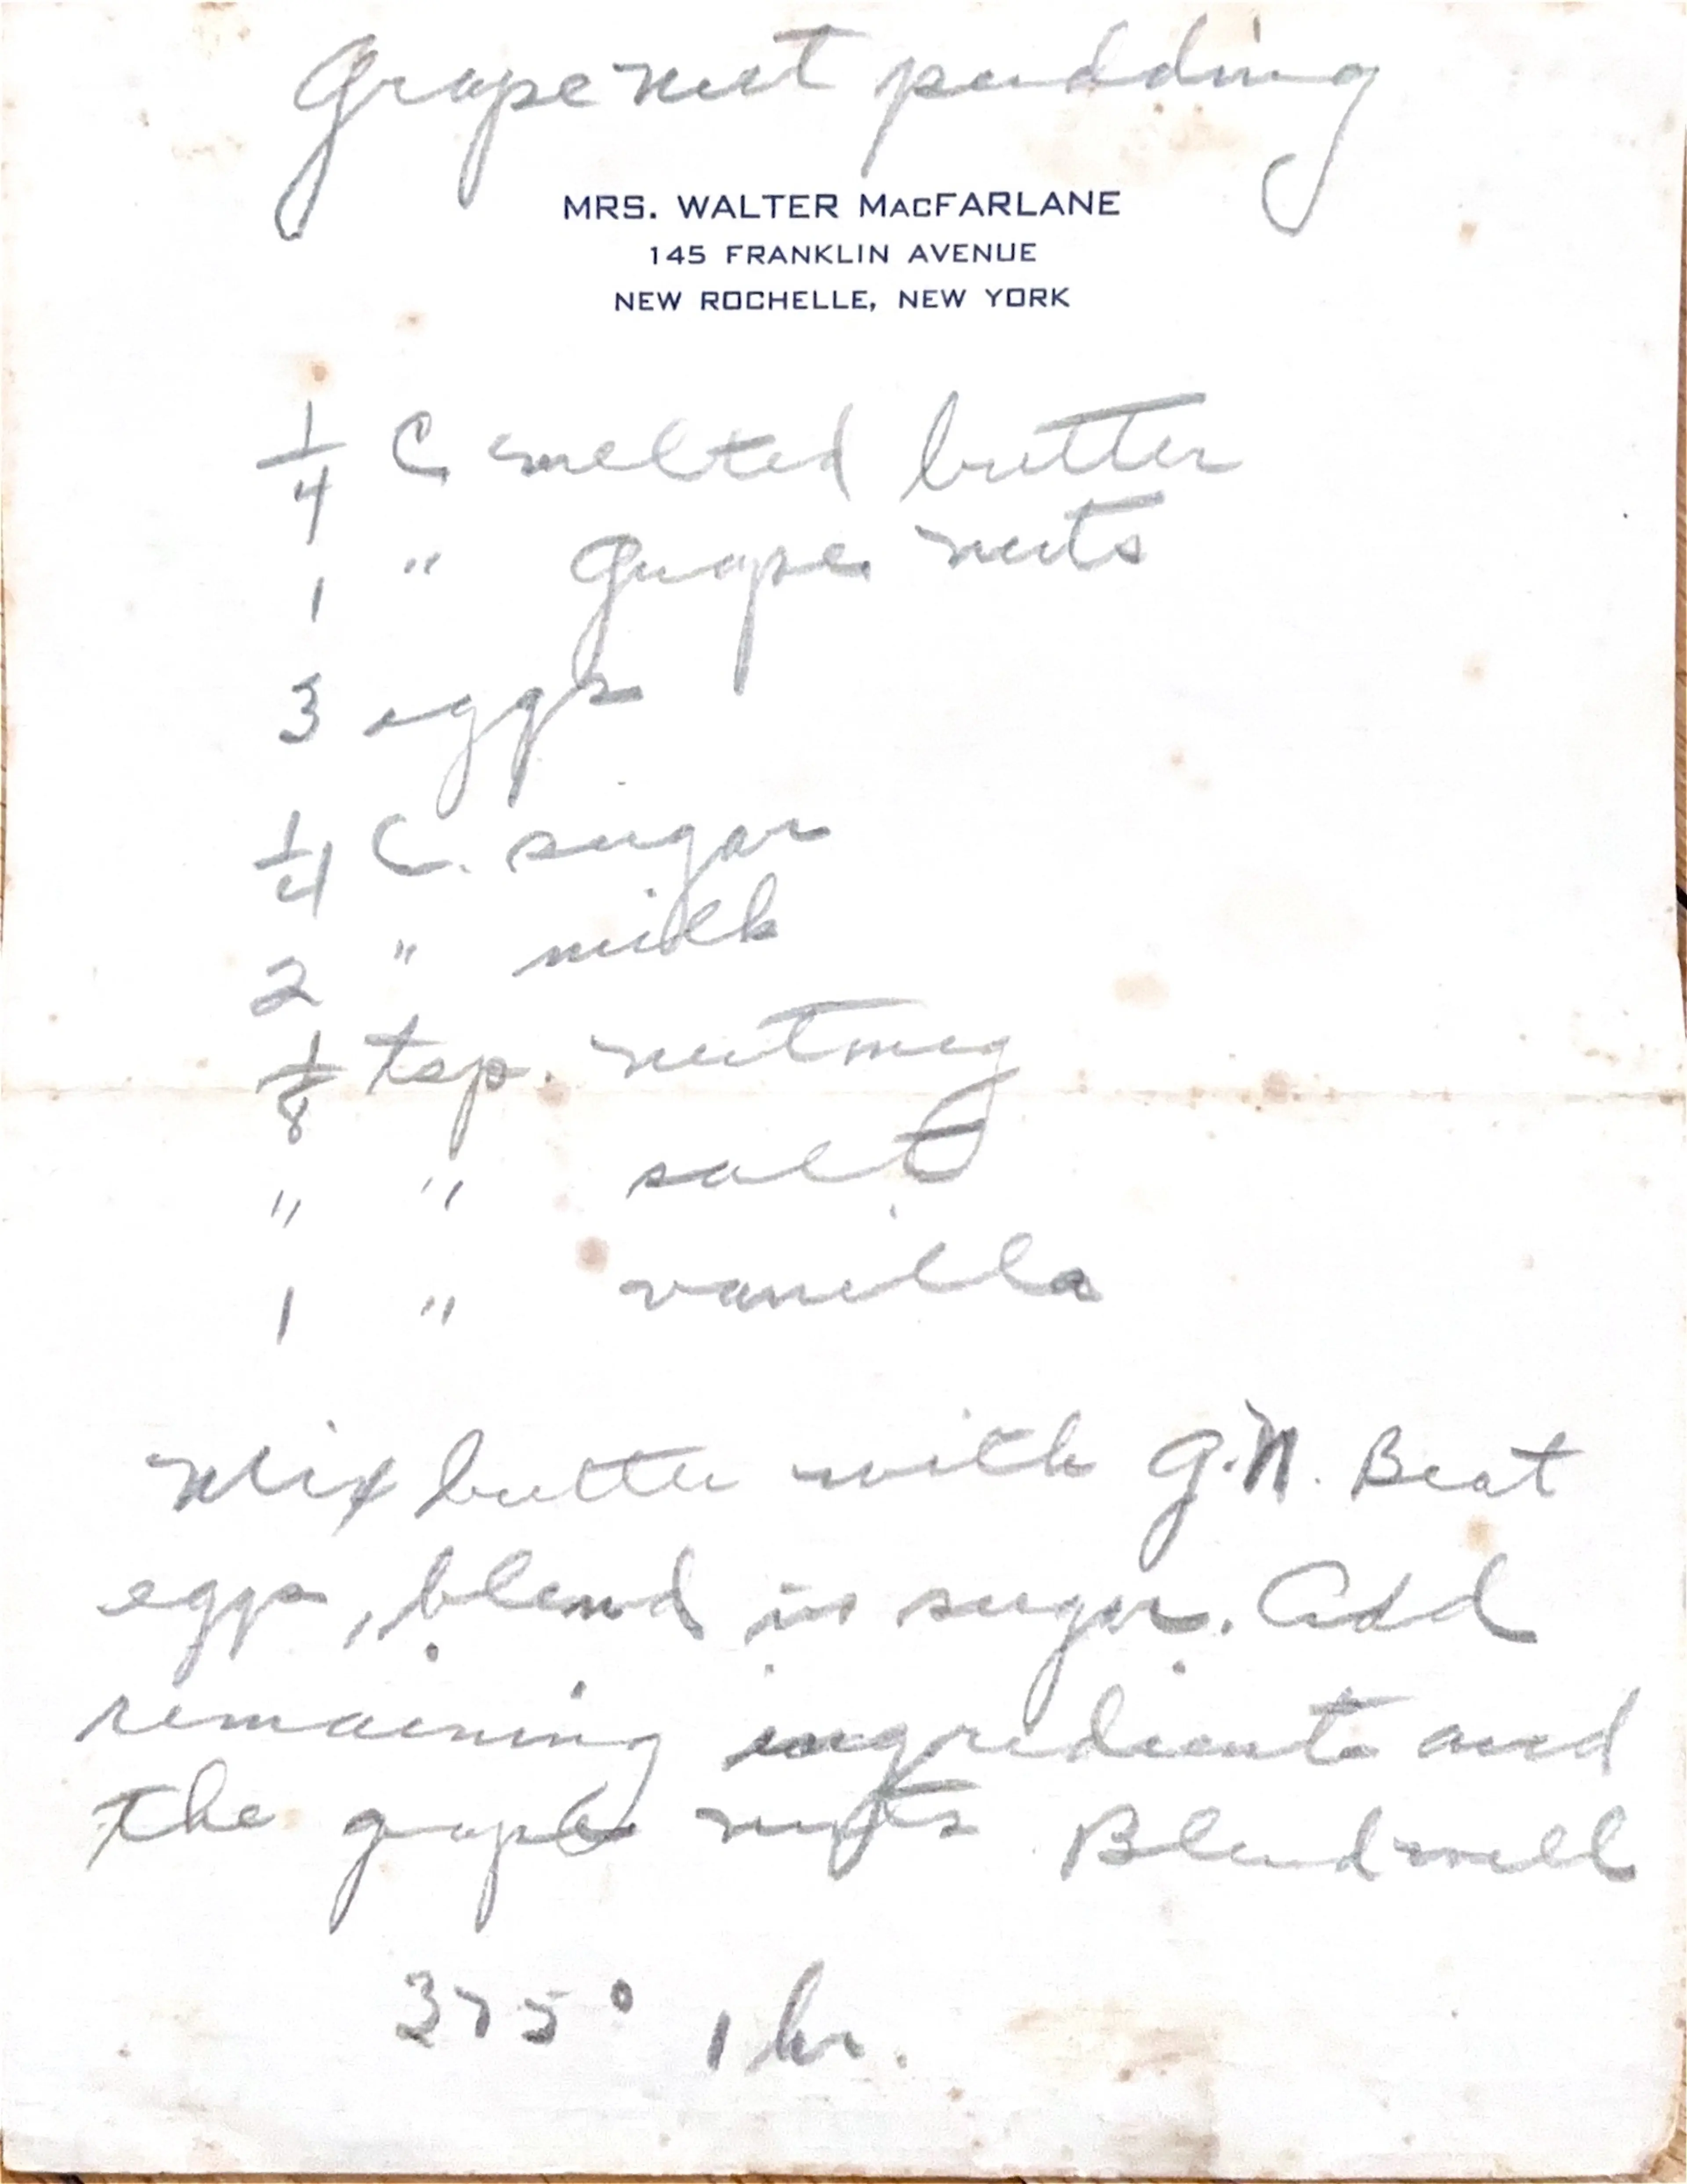 Grapenut pudding
MRS. WALTER MACFARLANE
145 FRANKLIN AVENUE
NEW ROCHELLE, NEW YORK
1/4 C melted butter
1 " Grape nuts
3 eggs
1/4 C. sugar
2 " milk
1/8 tsp. nutmeg
" " salt
1 " vanilla
Mix butter with G.N. Beat
eggs, blend in sugar. Add
remaining ingredients and
the grape nuts Blend well
375° 1 hr.